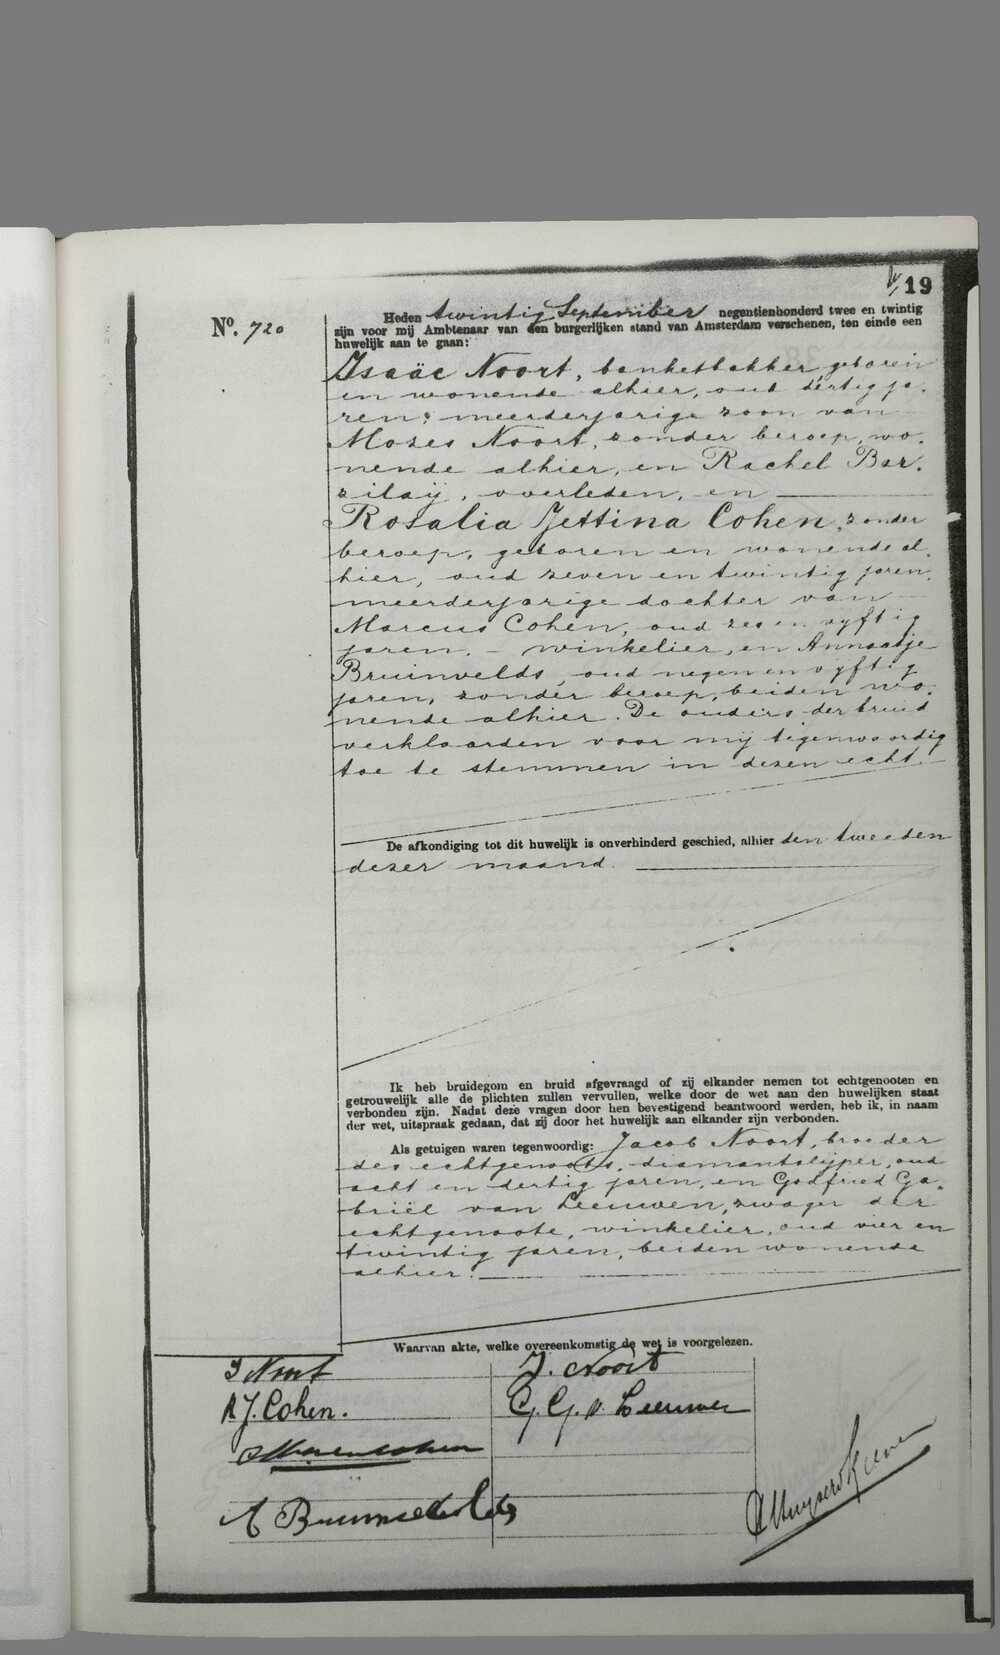 19
Nº. 720
Heden twintig September negentienhonderd twee en twintig
zijn voor mij Ambtenaar van den burgerlijken stand van Amsterdam verschenen, ten einde een
huwelijk aan te gaan:
Isaäc Noort, banketbakker, geboren
en wonende alhier, oud dertig ja-
ren, meerderjarige zoon van
Mozes Noort, zonder beroep, wo-
nende alhier, en Rachel Bar-
zilaij, overleden, en
Rosalia Jettina Cohen, zonder
beroep, geboren en wonende al-
hier, oud zeven en twintig jaren,
meerderjarige dochter van
Marcus Cohen, oud zes en vyftig
jaren, winkelier, en Annaatje
Bruinvelds, oud negen en vyftig
jaren, zonder beroep, beiden wo-
nende alhier. De ouders der bruid
verklaarden voor mij tegenwoordig
toe te stemmen in dezen echt.
De afkondiging tot dit huwelijk is onverhinderd geschied, alhier den tweeden
dezer maand.
Ik heb bruidegom en bruid afgevraagd of zij elkander nemen tot echtgenooten en
getrouwelijk alle de plichten zullen vervullen, welke door de wet aan den huwelijken staat
verbonden zijn. Nadat deze vragen door hen bevestigend beantwoord werden, heb ik, in naam
der wet, uitspraak gedaan, dat zij door het huwelijk aan elkander zijn verbonden.
Als getuigen waren tegenwoordig: Jacob Noort, broeder
des echtgenoots, diamantslijper, oud
acht en dertig jaren, en Godfried Ga-
briël van Leeuwen, zwager der
echtgenoote, winkelier, oud vier en
twintig jaren, beiden wonende
alhier.
Waarvan akte, welke overeenkomstig de wet is voorgelezen.
I Noort
J. Noort
R J. Cohen.
G. G. v. Leeuwen
A Bruinvelds